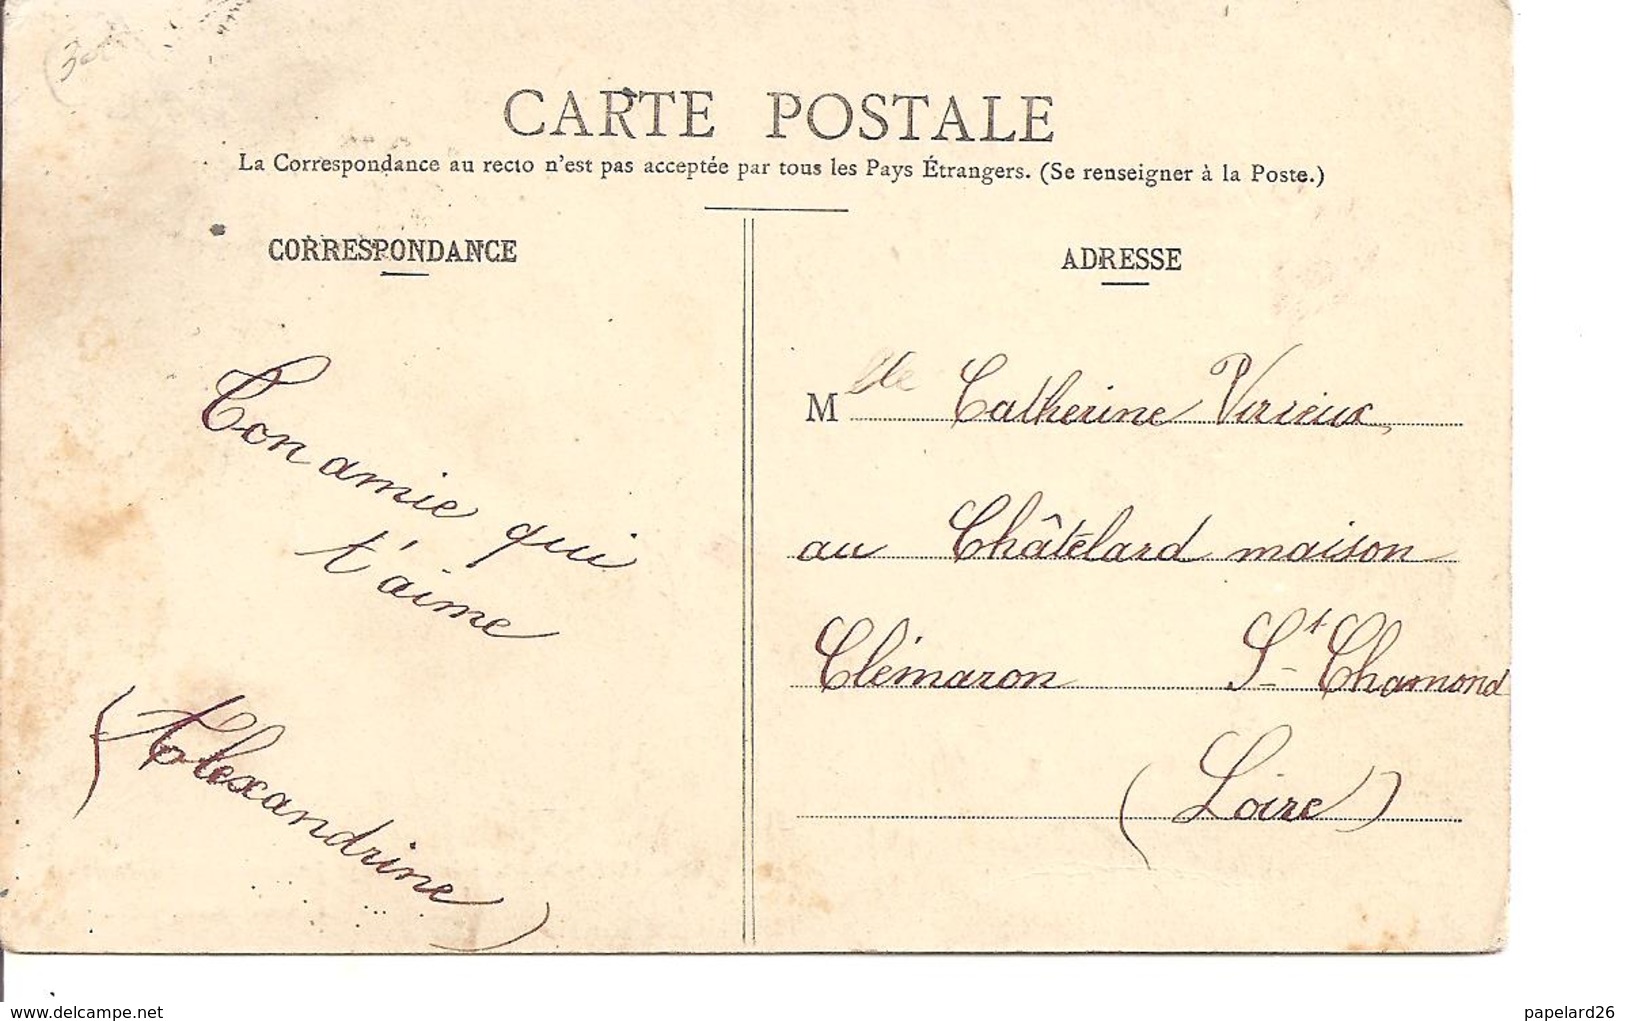 CARTE POSTALE
La Correspondance au recto n'est pas acceptée par tous les Pays Étrangers. (Se renseigner à la Poste.)
CORRESPONDANCE
Ton amie qui
t'aime
(Alexandrine)
ADRESSE
Mlle Catherine Verrieux
au Châtelard maison
Clémaron St Chamond
(Loire)
www.delcampe.net
papelard26